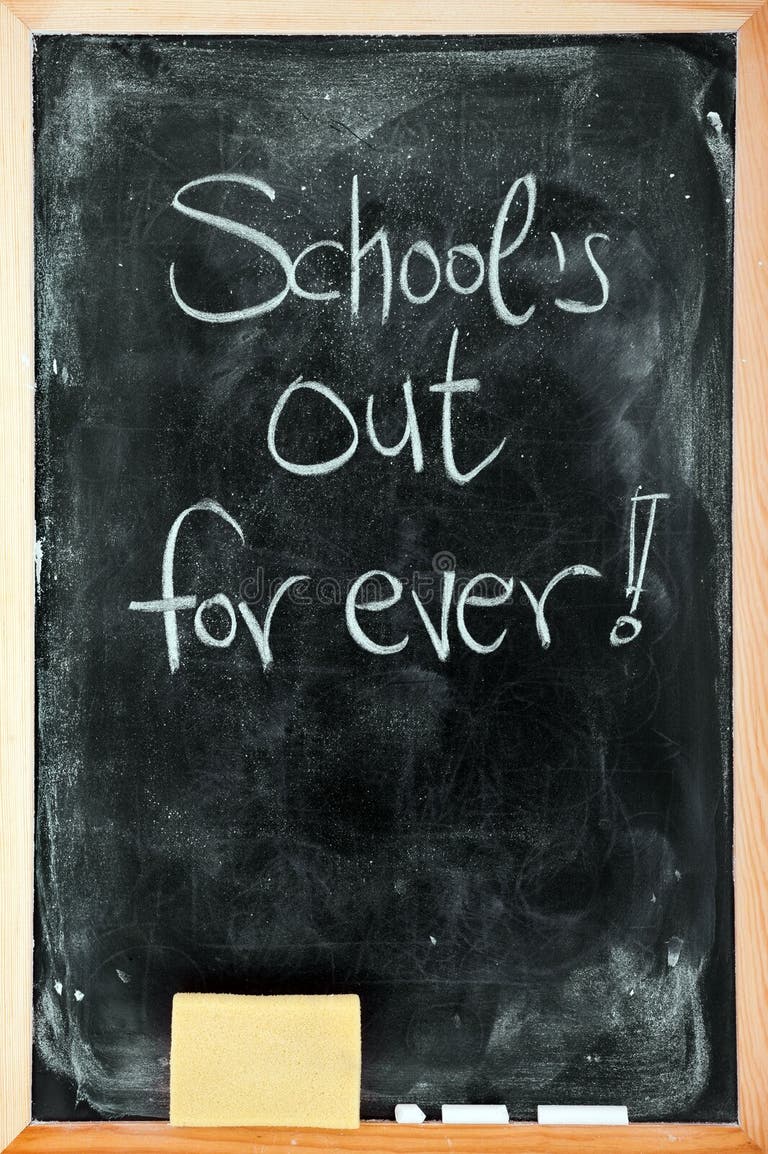 School's
out
for ever!!
dreamstime